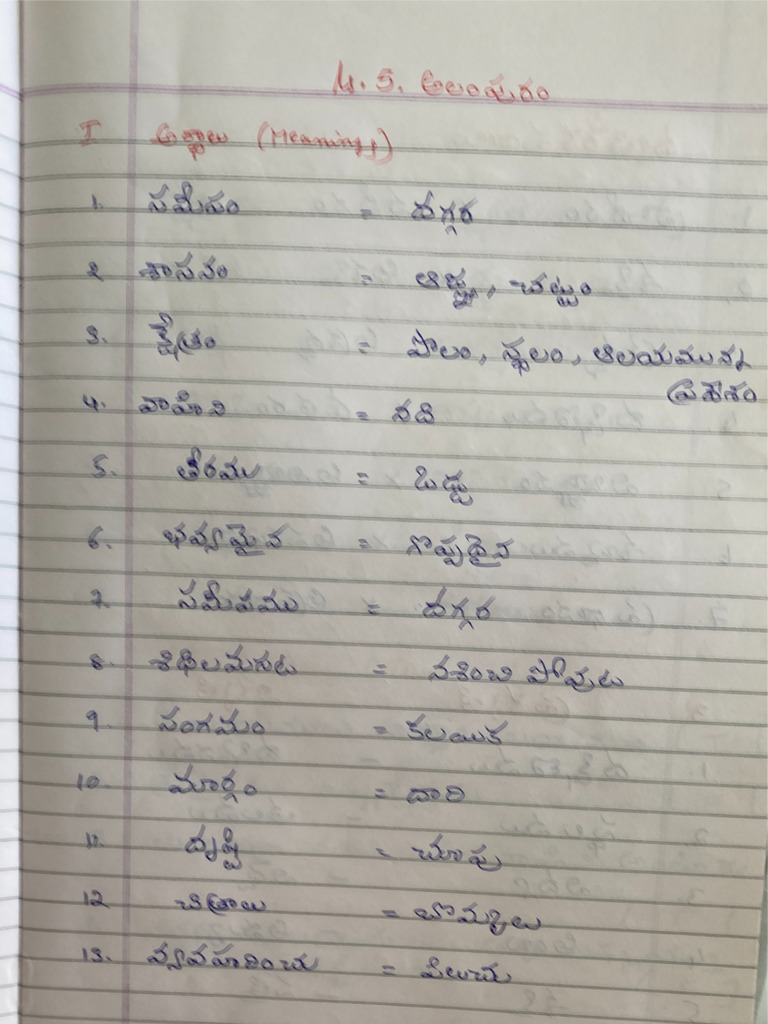 4. 5. అలంపురం
I అర్థాలు (Meanings)
1. సమీపం = దగ్గర
2 శాసనం = ఆజ్ఞ, చట్టం
3. క్షేత్రం = పొలం, స్థలం, ఆలయమున్న
ప్రదేశం
4. వాహిని = నది
5. తీరము = ఒడ్డు
6. భవ్యమైన = గొప్పదైన
7. సమీపము = దగ్గర
8. శిథిలమగుట = నశించి పోవుట
9. సంగమం = కలయిక
10. మార్గం = దారి
11. దృష్టి = చూపు
12 చిత్రాలు = బొమ్మలు
13. వ్యవహరించు = పిలుచు